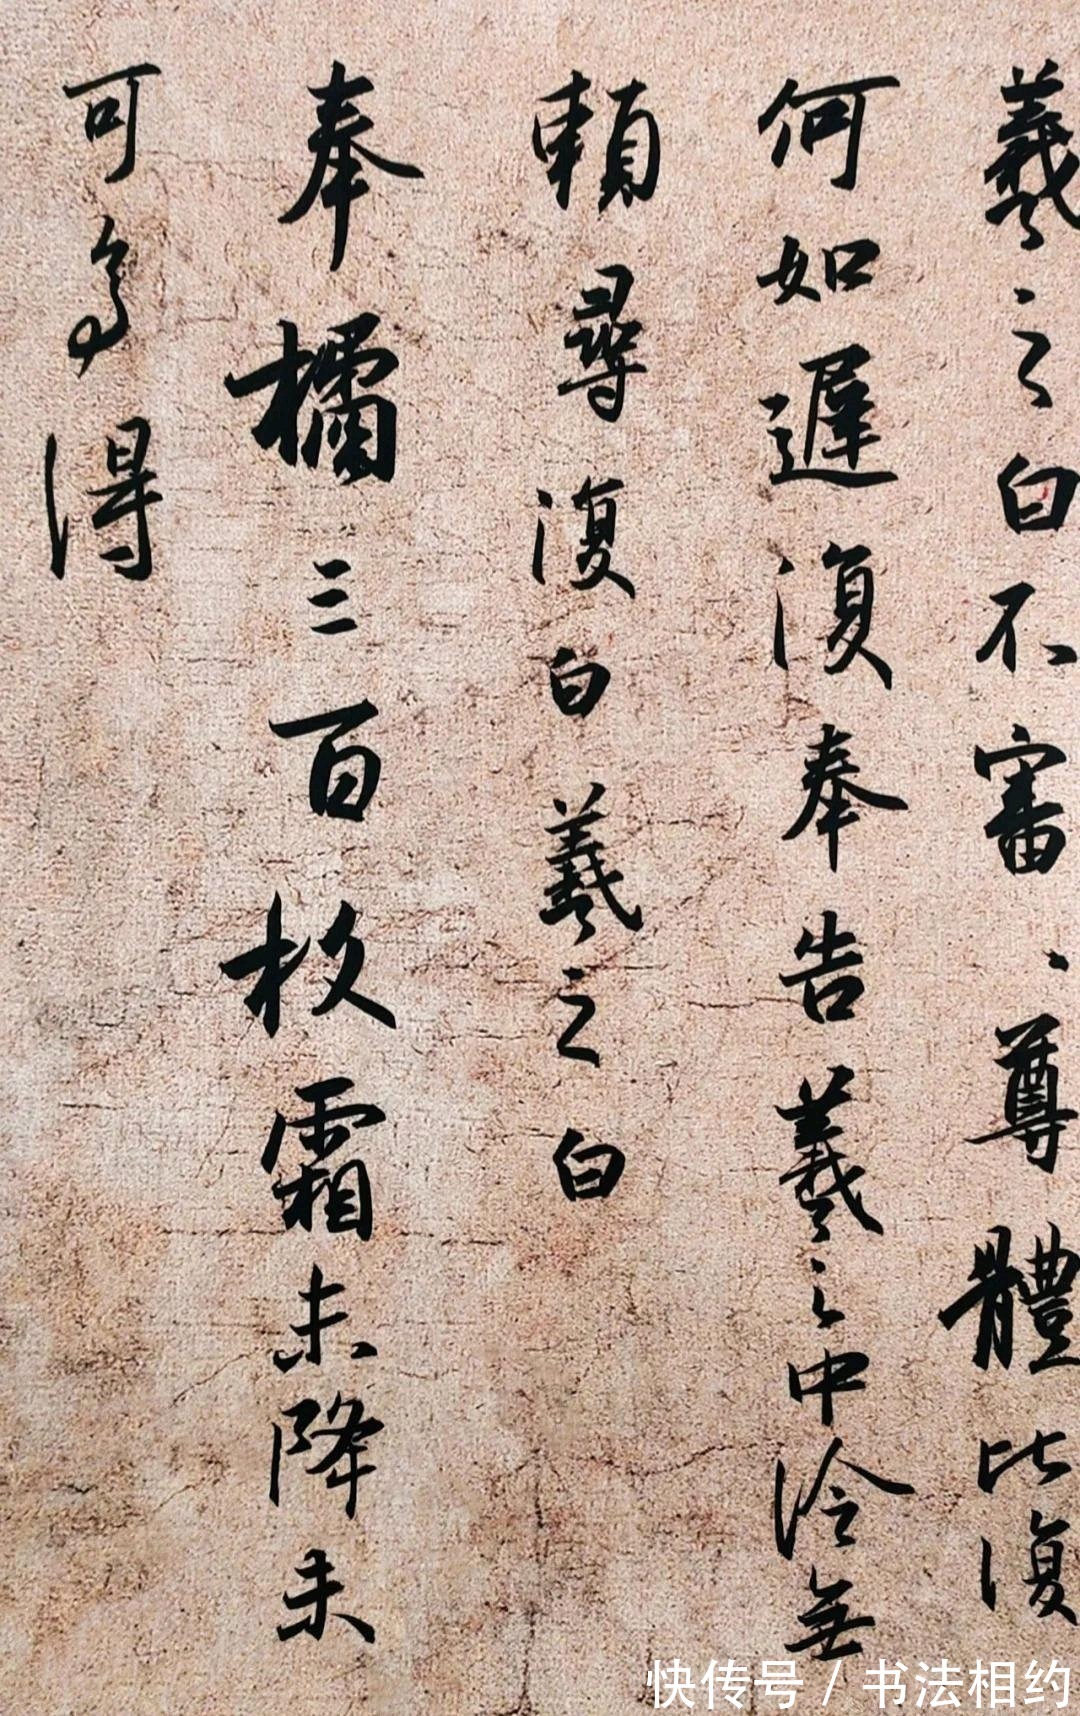 羲之白不審、尊體比復
何如遲復奉告羲之中冷無
賴尋復白羲之白
奉橘三百枚霜未降未
可多得
快传号 / 书法相约